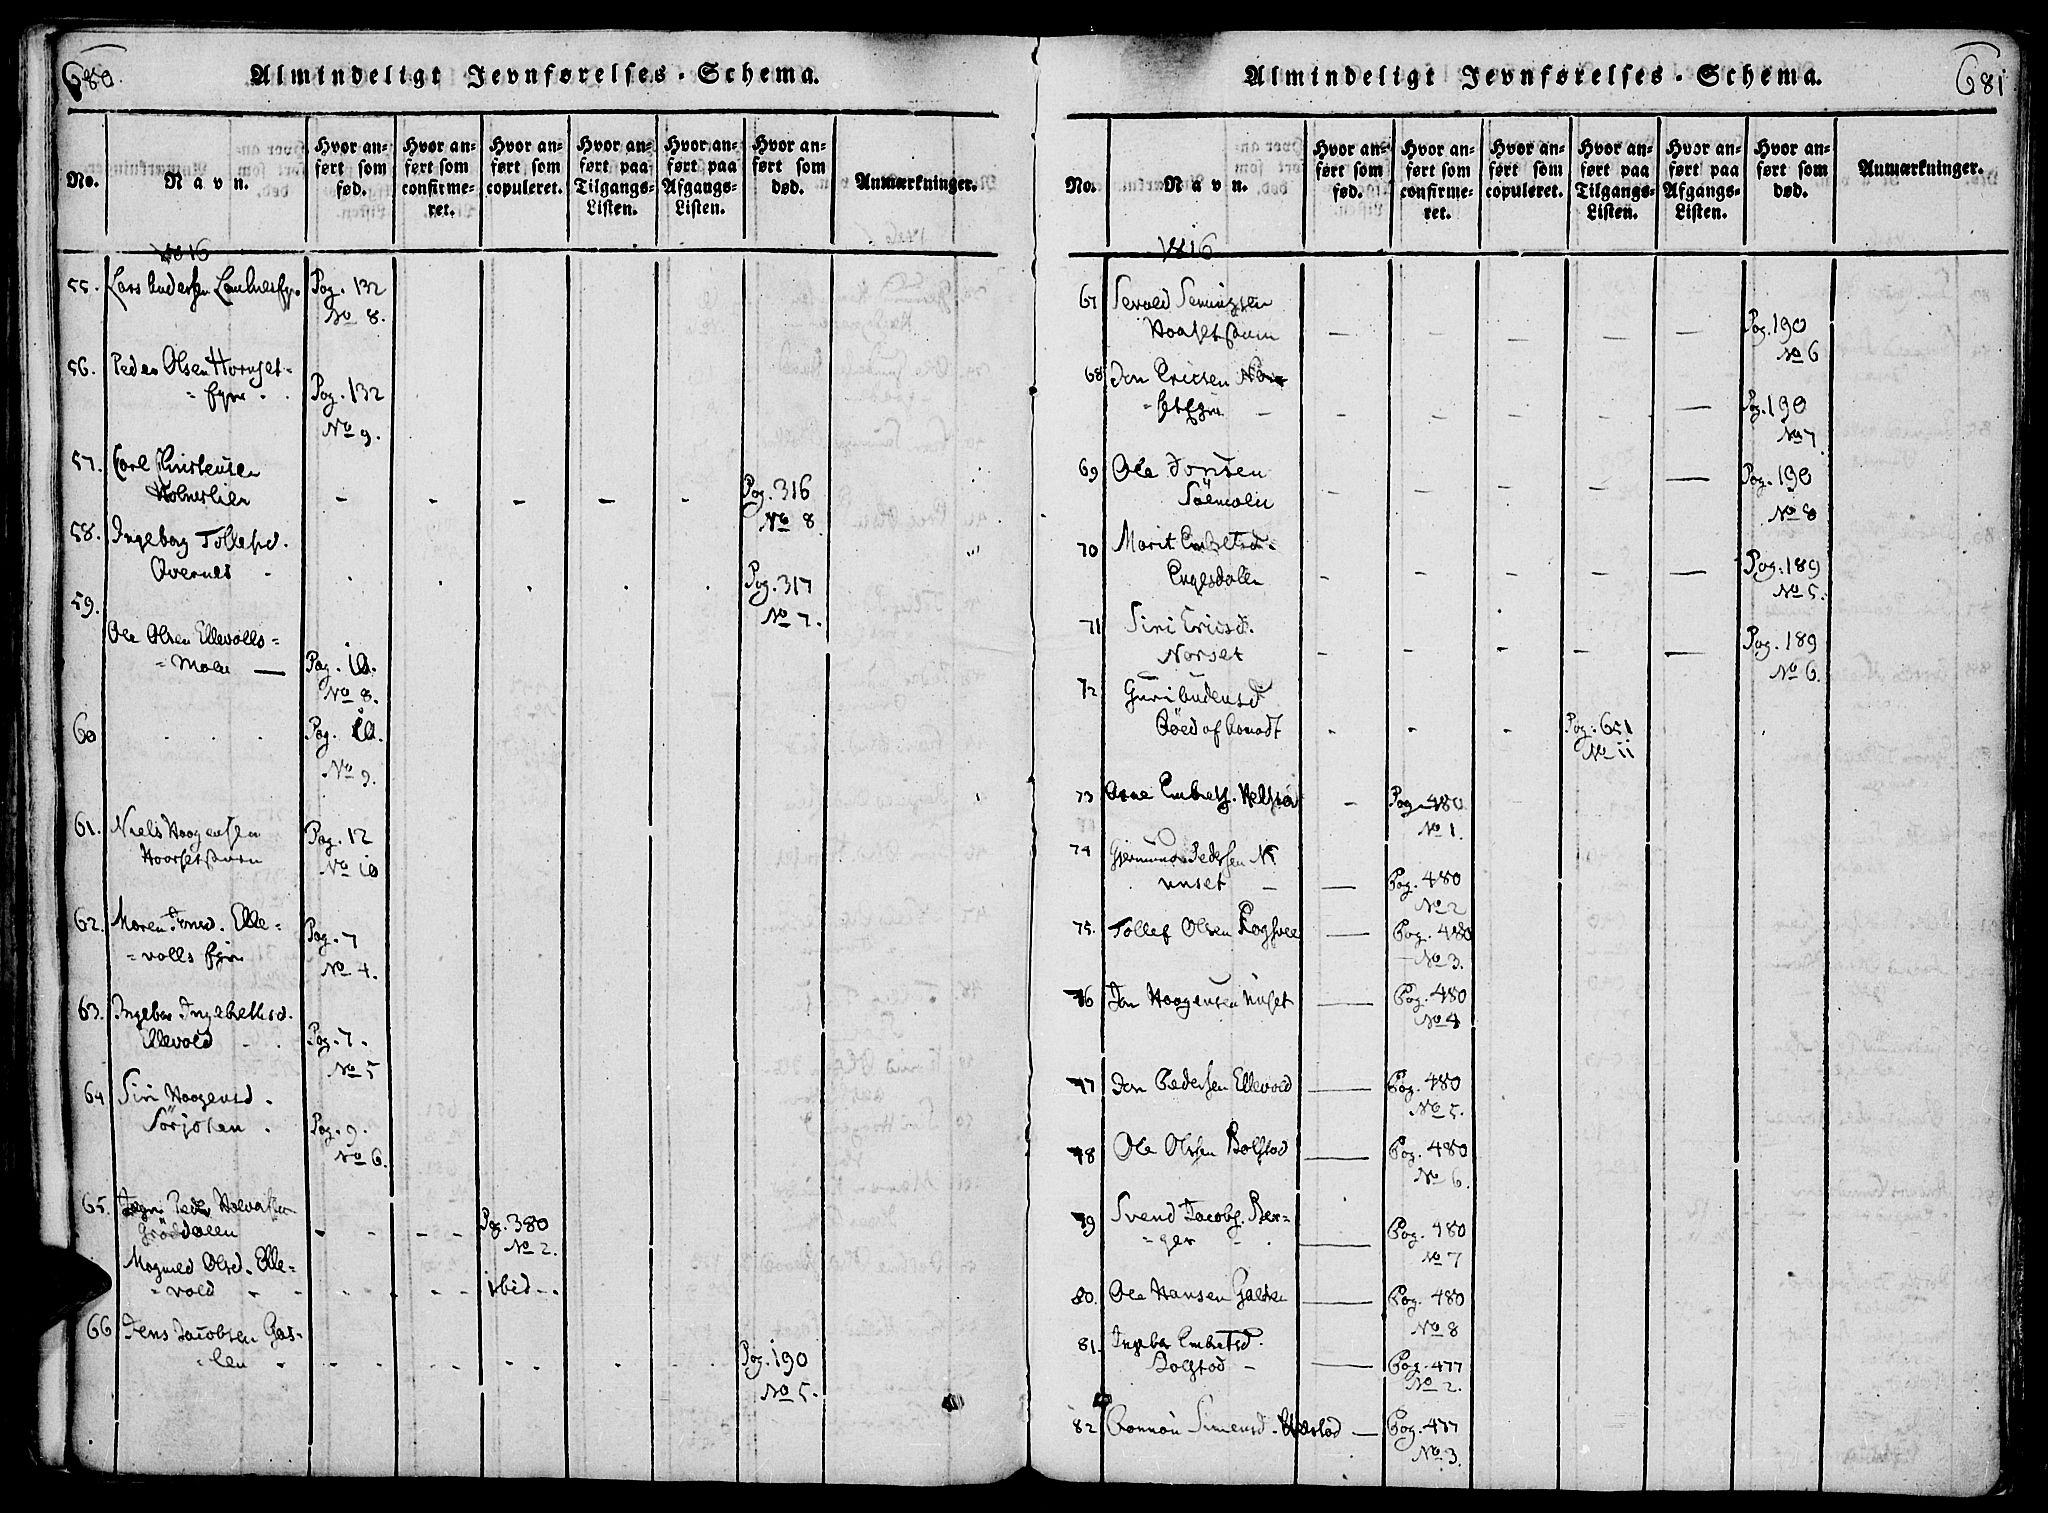 680.
Almindeligt Jevnførelses-Schema.
No.
Navn.
Hvor an-
ført som
fød.
Hvor an-
ført som
confirme-
ret.
Hvor an-
ført som
copuleret.
Hvor an-
ført paa
Tilgangs-
Listen.
Hvor an-
ført paa
Afgangs-
Listen.
Hvor an-
ført som
død.
Anmærkninger.
1816
55. Lars Andersen Pag. 132
No 8.
56. Peder Olsen Hornset-
- Ejer - . Pag. 132
No 9.
57. Carl Christensen
Holmerlien - - - - - Pag. 316
No 8.
58. Ingeborg Tollefsd.
Overnes - . . . . . Pag. 317
No 7.
59.
Ole Olsen Ellevolls-
- Moen — Pag. 10.
No 8.
60 . . . Pag. 10.
No 9.
61. Niels Haagensen
Pag. 12
No 10
62. Maren Jonsd. Elle-
- volls Ejer Pag. 7
No 4.
63. Ingebor Ingebrethsd.
Ellevold - . Pag. 7.
No 5
64 Siri Haagensd.
Sörjoten . Pag. 9.
No 6.
65. Peder
Grödalen - - - - Pag. 380
No 2.
Magnild Olsd. Elle-
- vold - - - - . - - ibid - .
66 Jens Jacobsen Gas-
- len - - - - - - - . . Pag. 190
No 5.
681
Almindeligt Jevnførelses-Schema.
No.
Navn.
Hvor an-
ført som
fød.
Hvor an-
ført som
confirme-
ret.
Hvor an-
ført som
copuleret.
Hvor an-
ført paa
Tilgangs-
Listen.
Hvor an-
ført paa
Afgangs-
Listen.
Hvor an-
ført som
død.
Anmærkninger.
1816
67 Sevald Semingsen
- - - - — Pag. 190
No 6
68 Jon Ericsen
- - - - - — Pag. 190
No 7
69 Ole Jonsen
Sölmolin - - - - — Pag. 190
No 8
70 Marit Embretsd.
Engesdalen - - - - — Pag. 189
No 5.
71 Siri Ericsd.
Norset - - - - — Pag. 189
No 6.
72 Guri
- - - Pag. 651
No 11
73 Arne Embrets. - Pag. 480
No 1.
74 Gjermund Pedersen
- — Pag. 480
No 2
75. Tollef Olsen Rogsvee — Pag. 480
No 3.
76 Jon Haagensen — Pag. 480
No 4
77 Jon Pedersen Ellevold — Pag. 480
No 5.
78 Ole Olsen Bolstad — Pag. 480
No 6.
79 Svend Jacobs. Ber-
- ger - . — Pag. 480
No 7
80. Ole Hansen Galten — Pag. 480
No 8
81. Ingebor Embretsd.
Bolstad - — Pag. 477
No 2.
82 Simensd. — Pag. 477
No 3.